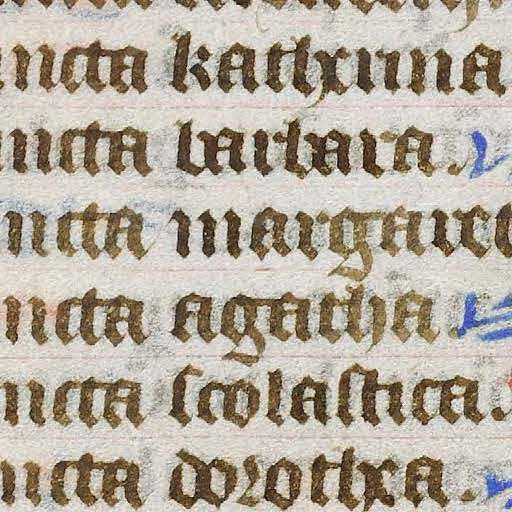 ncta katherina
ncta barbara.
ncta margaret
ncta agatha
ncta scolastica.
ncta dorothea.